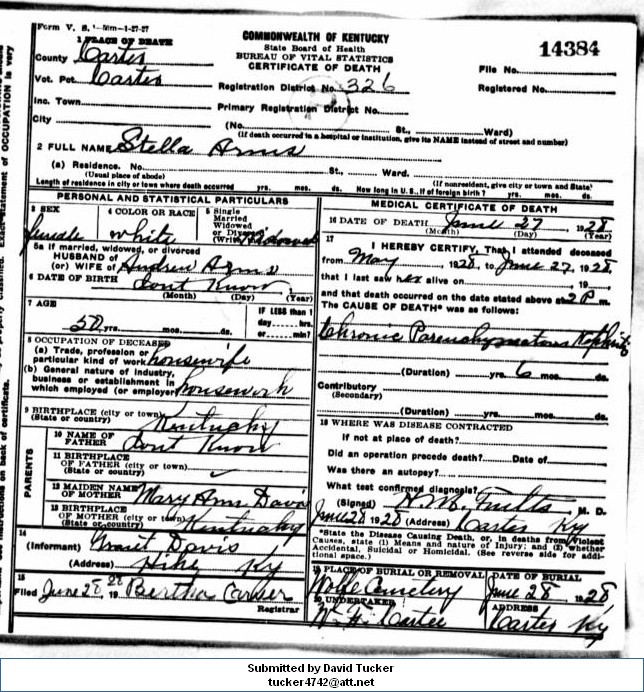 Form V. S. 1-Mm-1-27-27
COMMONWEALTH OF KENTUCKY
State Board of Health
BUREAU OF VITAL STATISTICS
CERTIFICATE OF DEATH
14384
1 PLACE OF DEATH
County Carter
Vot. Pct. Carter
Inc. Town
City
Registration District No. 326
Primary Registration District No.
File No.
Registered No.
(No. St., Ward)
(If death occurred in a hospital or institution, give its NAME instead of street and number)
2 FULL NAME Stella Arms
(a) Residence. No. St., Ward.
(Usual place of abode) (If nonresident, give city or town and State)
Length of residence in city or town where death occurred yrs. mos. ds. How long in U. S., if of foreign birth? yrs. mos. ds.
PERSONAL AND STATISTICAL PARTICULARS
3 SEX female
4 COLOR OR RACE white
5 Single
Married
Widowed
or Divorced
(Write) Widowed
5a If married, widowed, or divorced
HUSBAND of
(or) WIFE of Andrew Arms
6 DATE OF BIRTH Dont Know
(Month) (Day) (Year)
7 AGE
50 yrs. mos. ds.
IF LESS than 1
day hrs.
or min?
8 OCCUPATION OF DECEASED
(a) Trade, profession or
particular kind of work housewife
(b) General nature of industry,
business or establishment in
which employed (or employer) housework
9 BIRTHPLACE (city or town)
(State or country) Kentucky
PARENTS
10 NAME OF
FATHER Dont Know
11 BIRTHPLACE
OF FATHER (city or town)
(State or country)
12 MAIDEN NAME
OF MOTHER Mary Ann Davis
13 BIRTHPLACE
OF MOTHER
(State or country) Kentucky
14
(Informant) Davis
(Address) Ky
15
Filed June 28 1928 Bertha Carver
Registrar
MEDICAL CERTIFICATE OF DEATH
16 DATE OF DEATH June 27, 1928
(Month) (Day) (Year)
17
I HEREBY CERTIFY, That I attended deceased
from May, 1928, to June 27, 1928
that I last saw her alive on , 19
and that death occurred on the date stated above at 2 P m.
The CAUSE OF DEATH* was as follows:
Chronic Parenchymatous Nephritis
(Duration) yrs. 6 mos. ds.
Contributory
(Secondary)
(Duration) yrs. mos. ds.
18 WHERE WAS DISEASE CONTRACTED
If not at place of death?
Did an operation precede death? Date of
Was there an autopsy?
What test confirmed diagnosis?
(Signed) M. D.
June 28 1928 (Address) Carter Ky
*State the Disease Causing Death, or, in deaths from Violent
Causes, state (1) Means and nature of Injury; and (2) whether
Accidental, Suicidal or Homicidal. (See reverse side for addi-
tional space.)
19 PLACE OF BURIAL OR REMOVAL DATE OF BURIAL
Wolfe Cemetery June 28 1928
20 UNDERTAKER ADDRESS
W. H. Cartee Carter Ky
Submitted by David Tucker
tucker4742@att.net